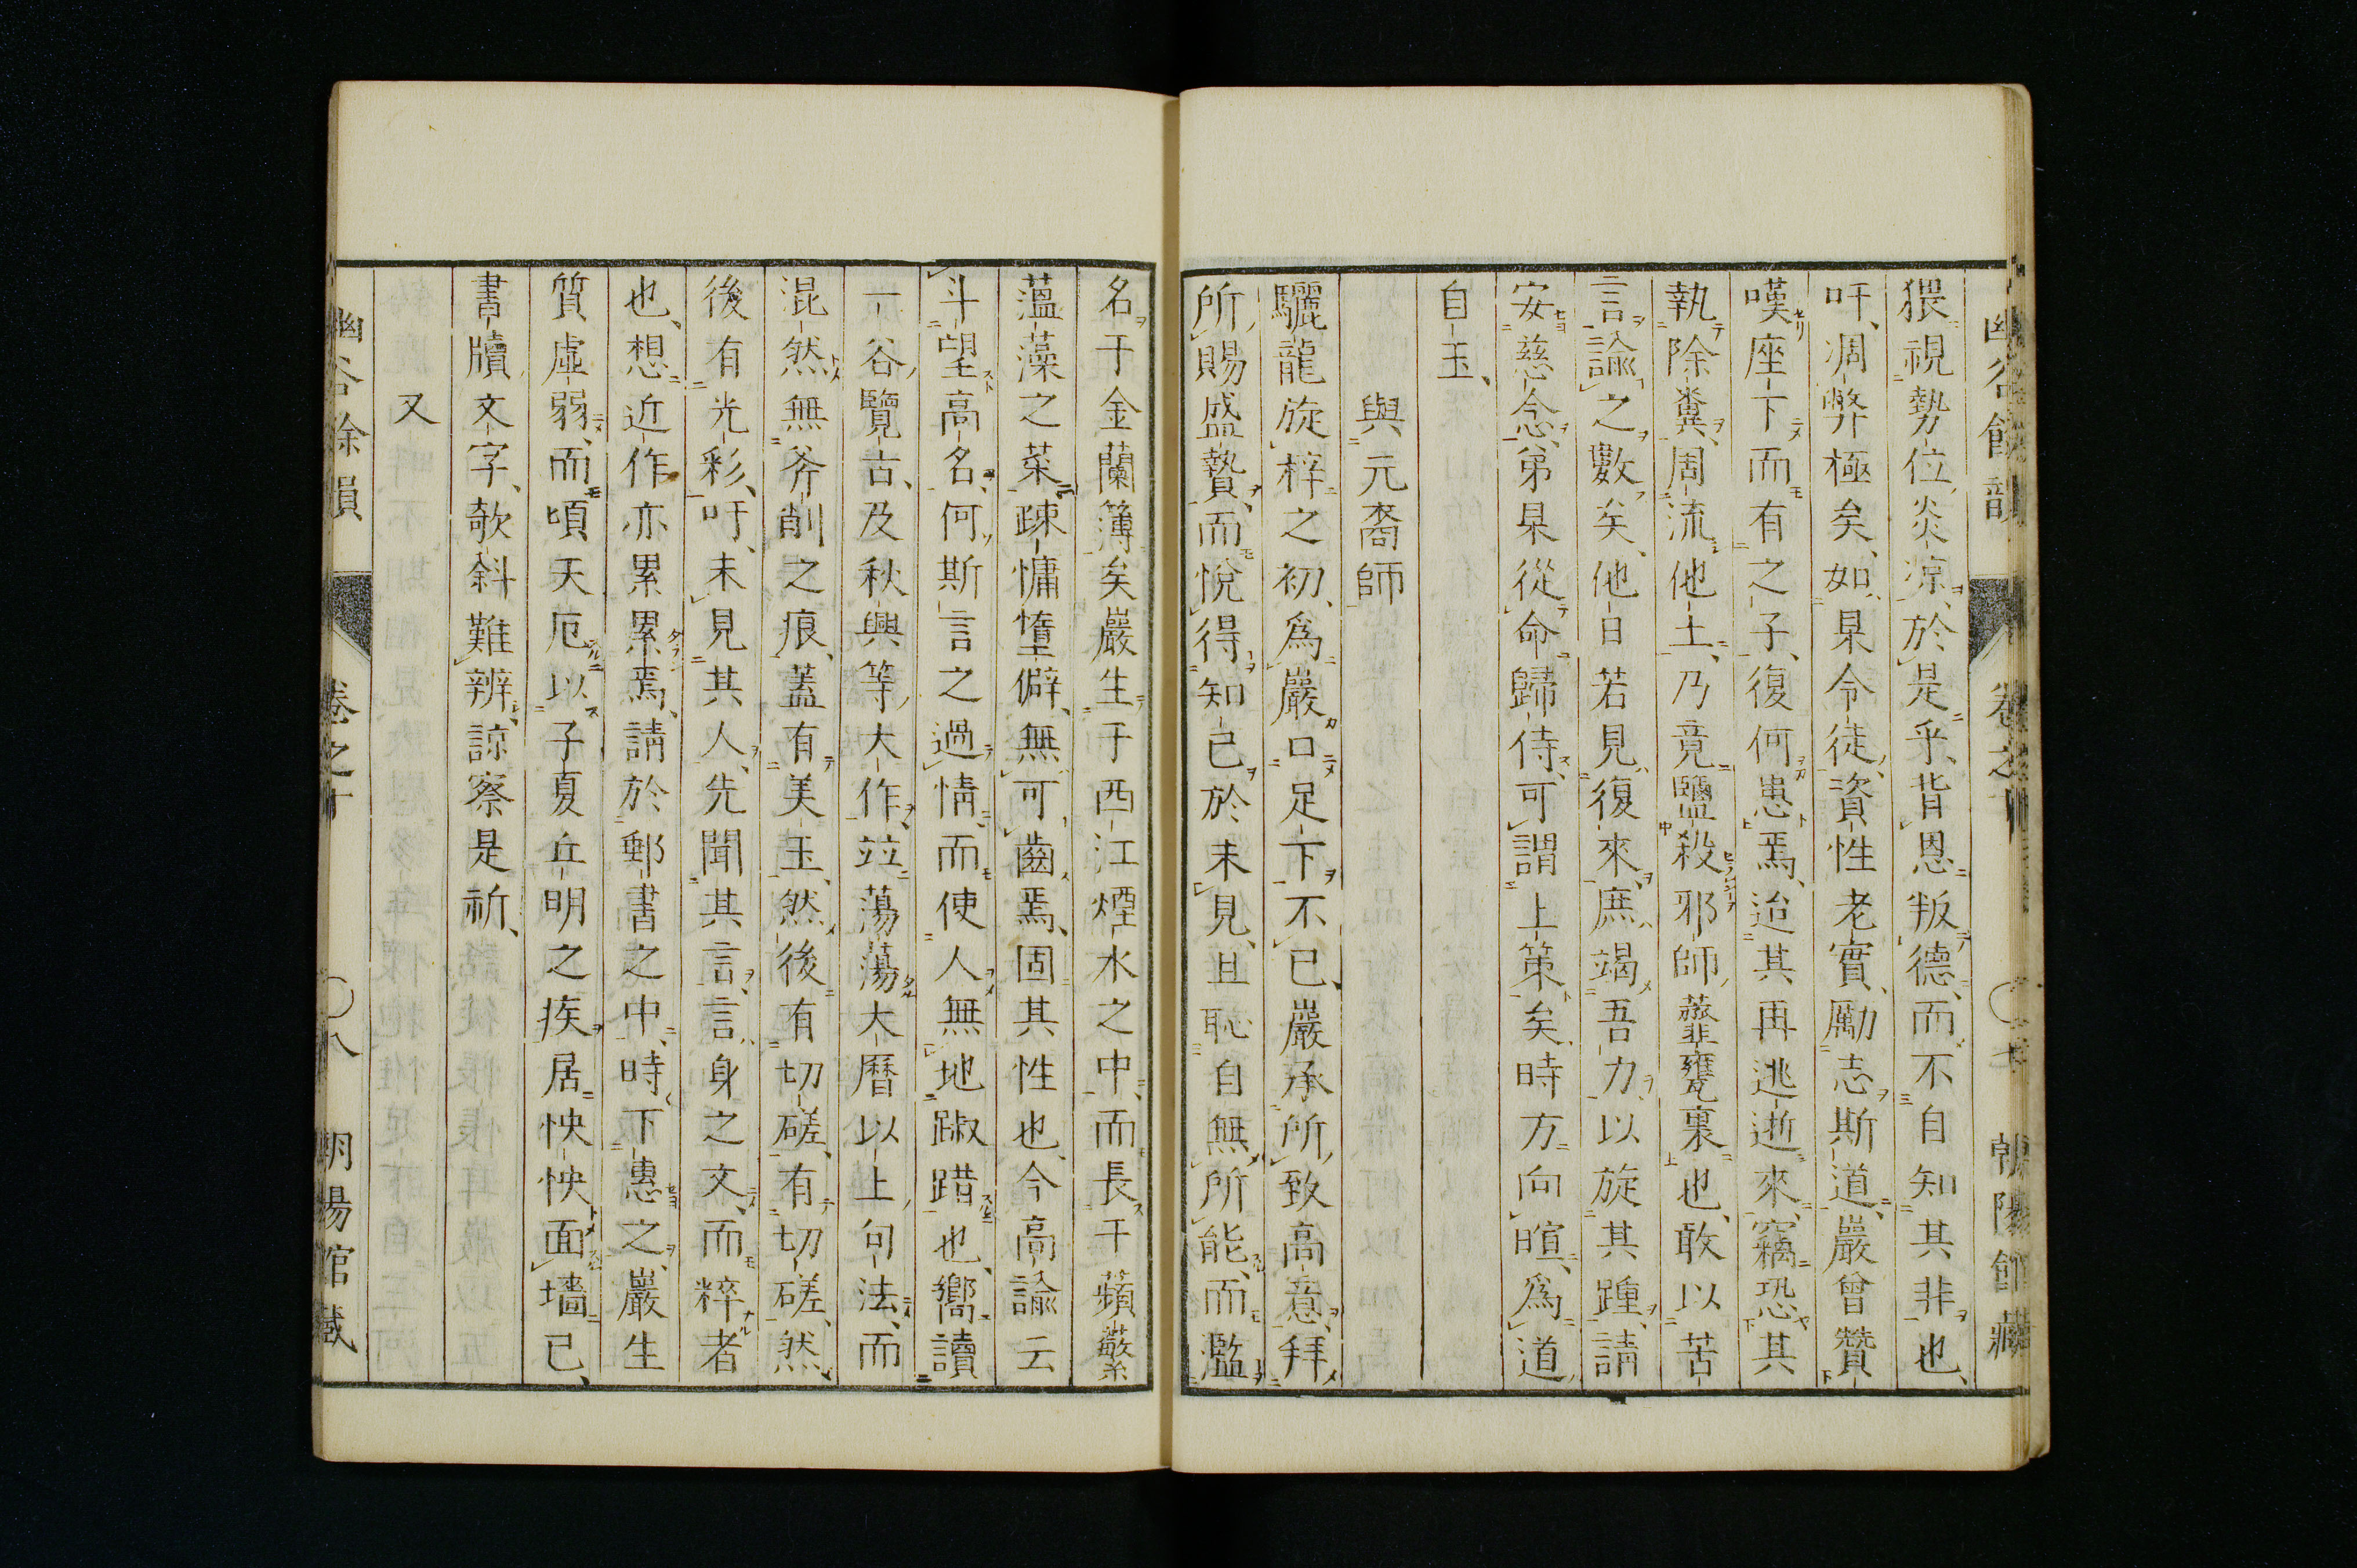 猥視勢位炎凉於是乎背恩叛德而不自知其非也
吁凋弊極矣如杲令徒資性老實勵志斯道巖曾贊
嘆座下而有之子復何患焉迨其再逃逝來竊恐其
執除糞周流他土乃竟鹽殺邪師虀甕裏也敢以苦
言諭之數矣他日若見復來庶竭吾力以旋其踵請
安慈念弟杲從命歸侍可謂上策矣時方向暄爲道
自玉
與元裔師
驪龍旋梓之初爲巖口足下不已巖承所致高意拜
所賜盛贄而悅得知己於未見且恥自無所能而濫
名于金蘭簿矣巖生于西江煙水之中而長于蘋蘩
薀藻之菜疎慵墮僻無可齒焉固其性也今高諭云
斗望高名何斯言之過情而使人無地踧踖也嚮讀
一谷覽古及秋興等大作竝蕩蕩大曆以上句法而
混然無斧削之痕蓋有美玉然後有切磋有切磋然
後有光彩吁未見其人先聞其言言身之文而粹者
也想近作亦累累焉請於郵書之中時下惠之巖生
質虛弱而頃天厄以子夏丘明之疾居怏怏面墻已
書牘文字欹斜難辨諒察是祈
又
幽谷餘韻 卷之十 〇七 朝陽館藏
幽谷餘韻 卷之十 〇八 朝陽館藏